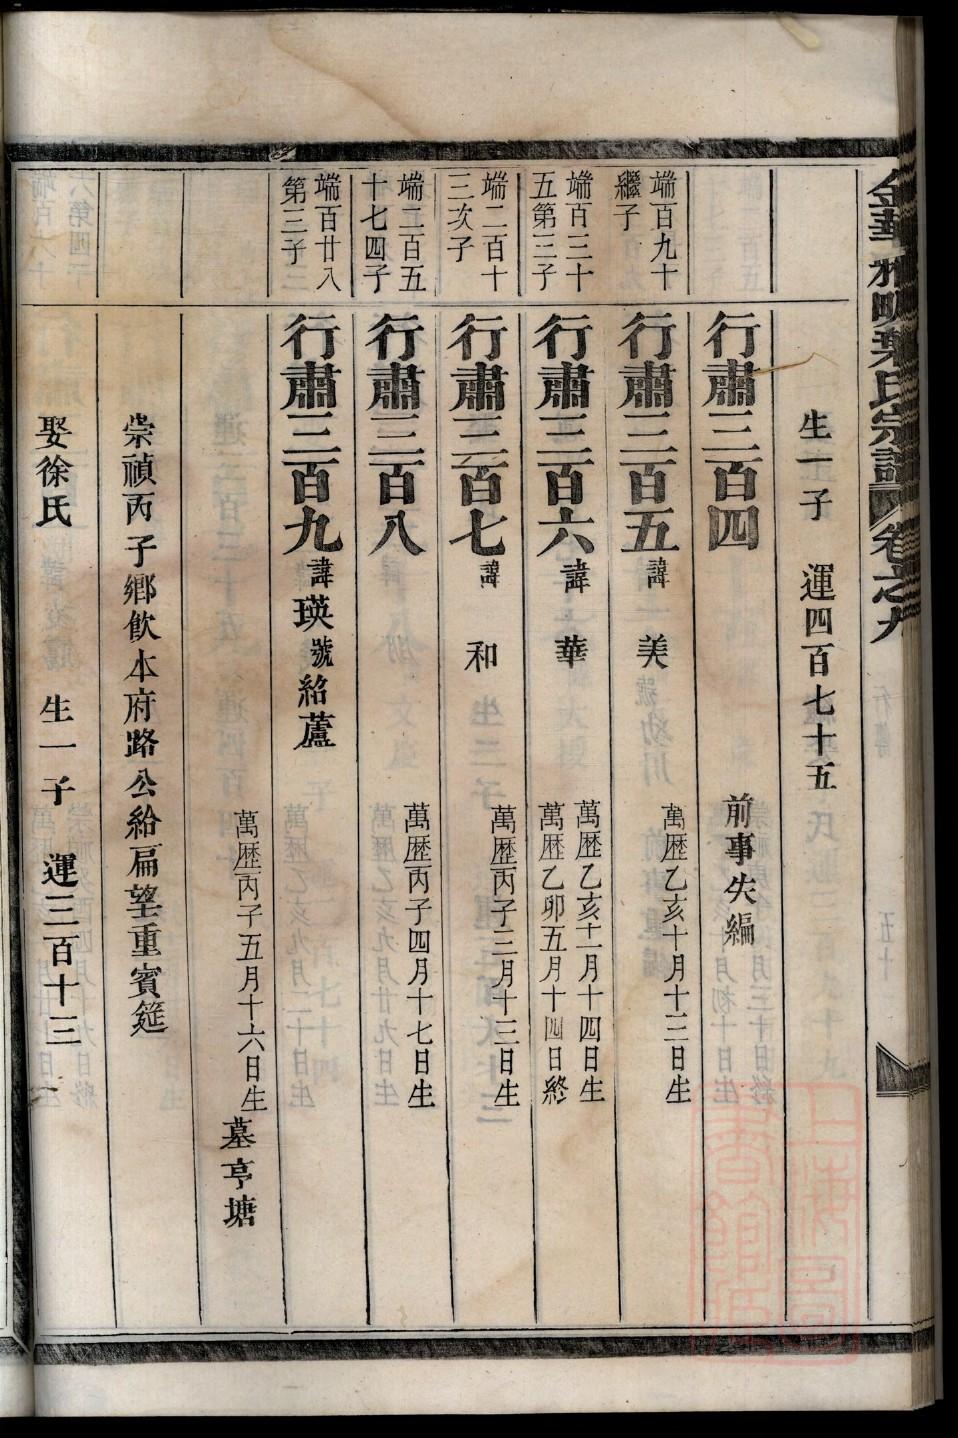 金華雅畈葉氏宗譜 卷之九
生一子 運四百七十五
行肅三百四 前事失編
端百九十
繼子
行肅三百五 諱 美 萬歷乙亥十月十三日生
端百三十
五第三子
行肅三百六 諱 華 萬歷乙亥十一月十四日生
萬歷乙卯五月十四日終
端二百十
三次子
行肅三百七 諱 和 萬歷丙子三月十三日生
端二百五
十七四子
行肅三百八 萬歷丙子四月十七日生
端百廿八
第三子
行肅三百九 諱瑛號紹蘆
萬歷丙子五月十六日生 墓亨塘
崇禎丙子鄉飲本府路公給扁望重賓筵
娶徐氏 生一子 運三百十三
上海圖書館藏